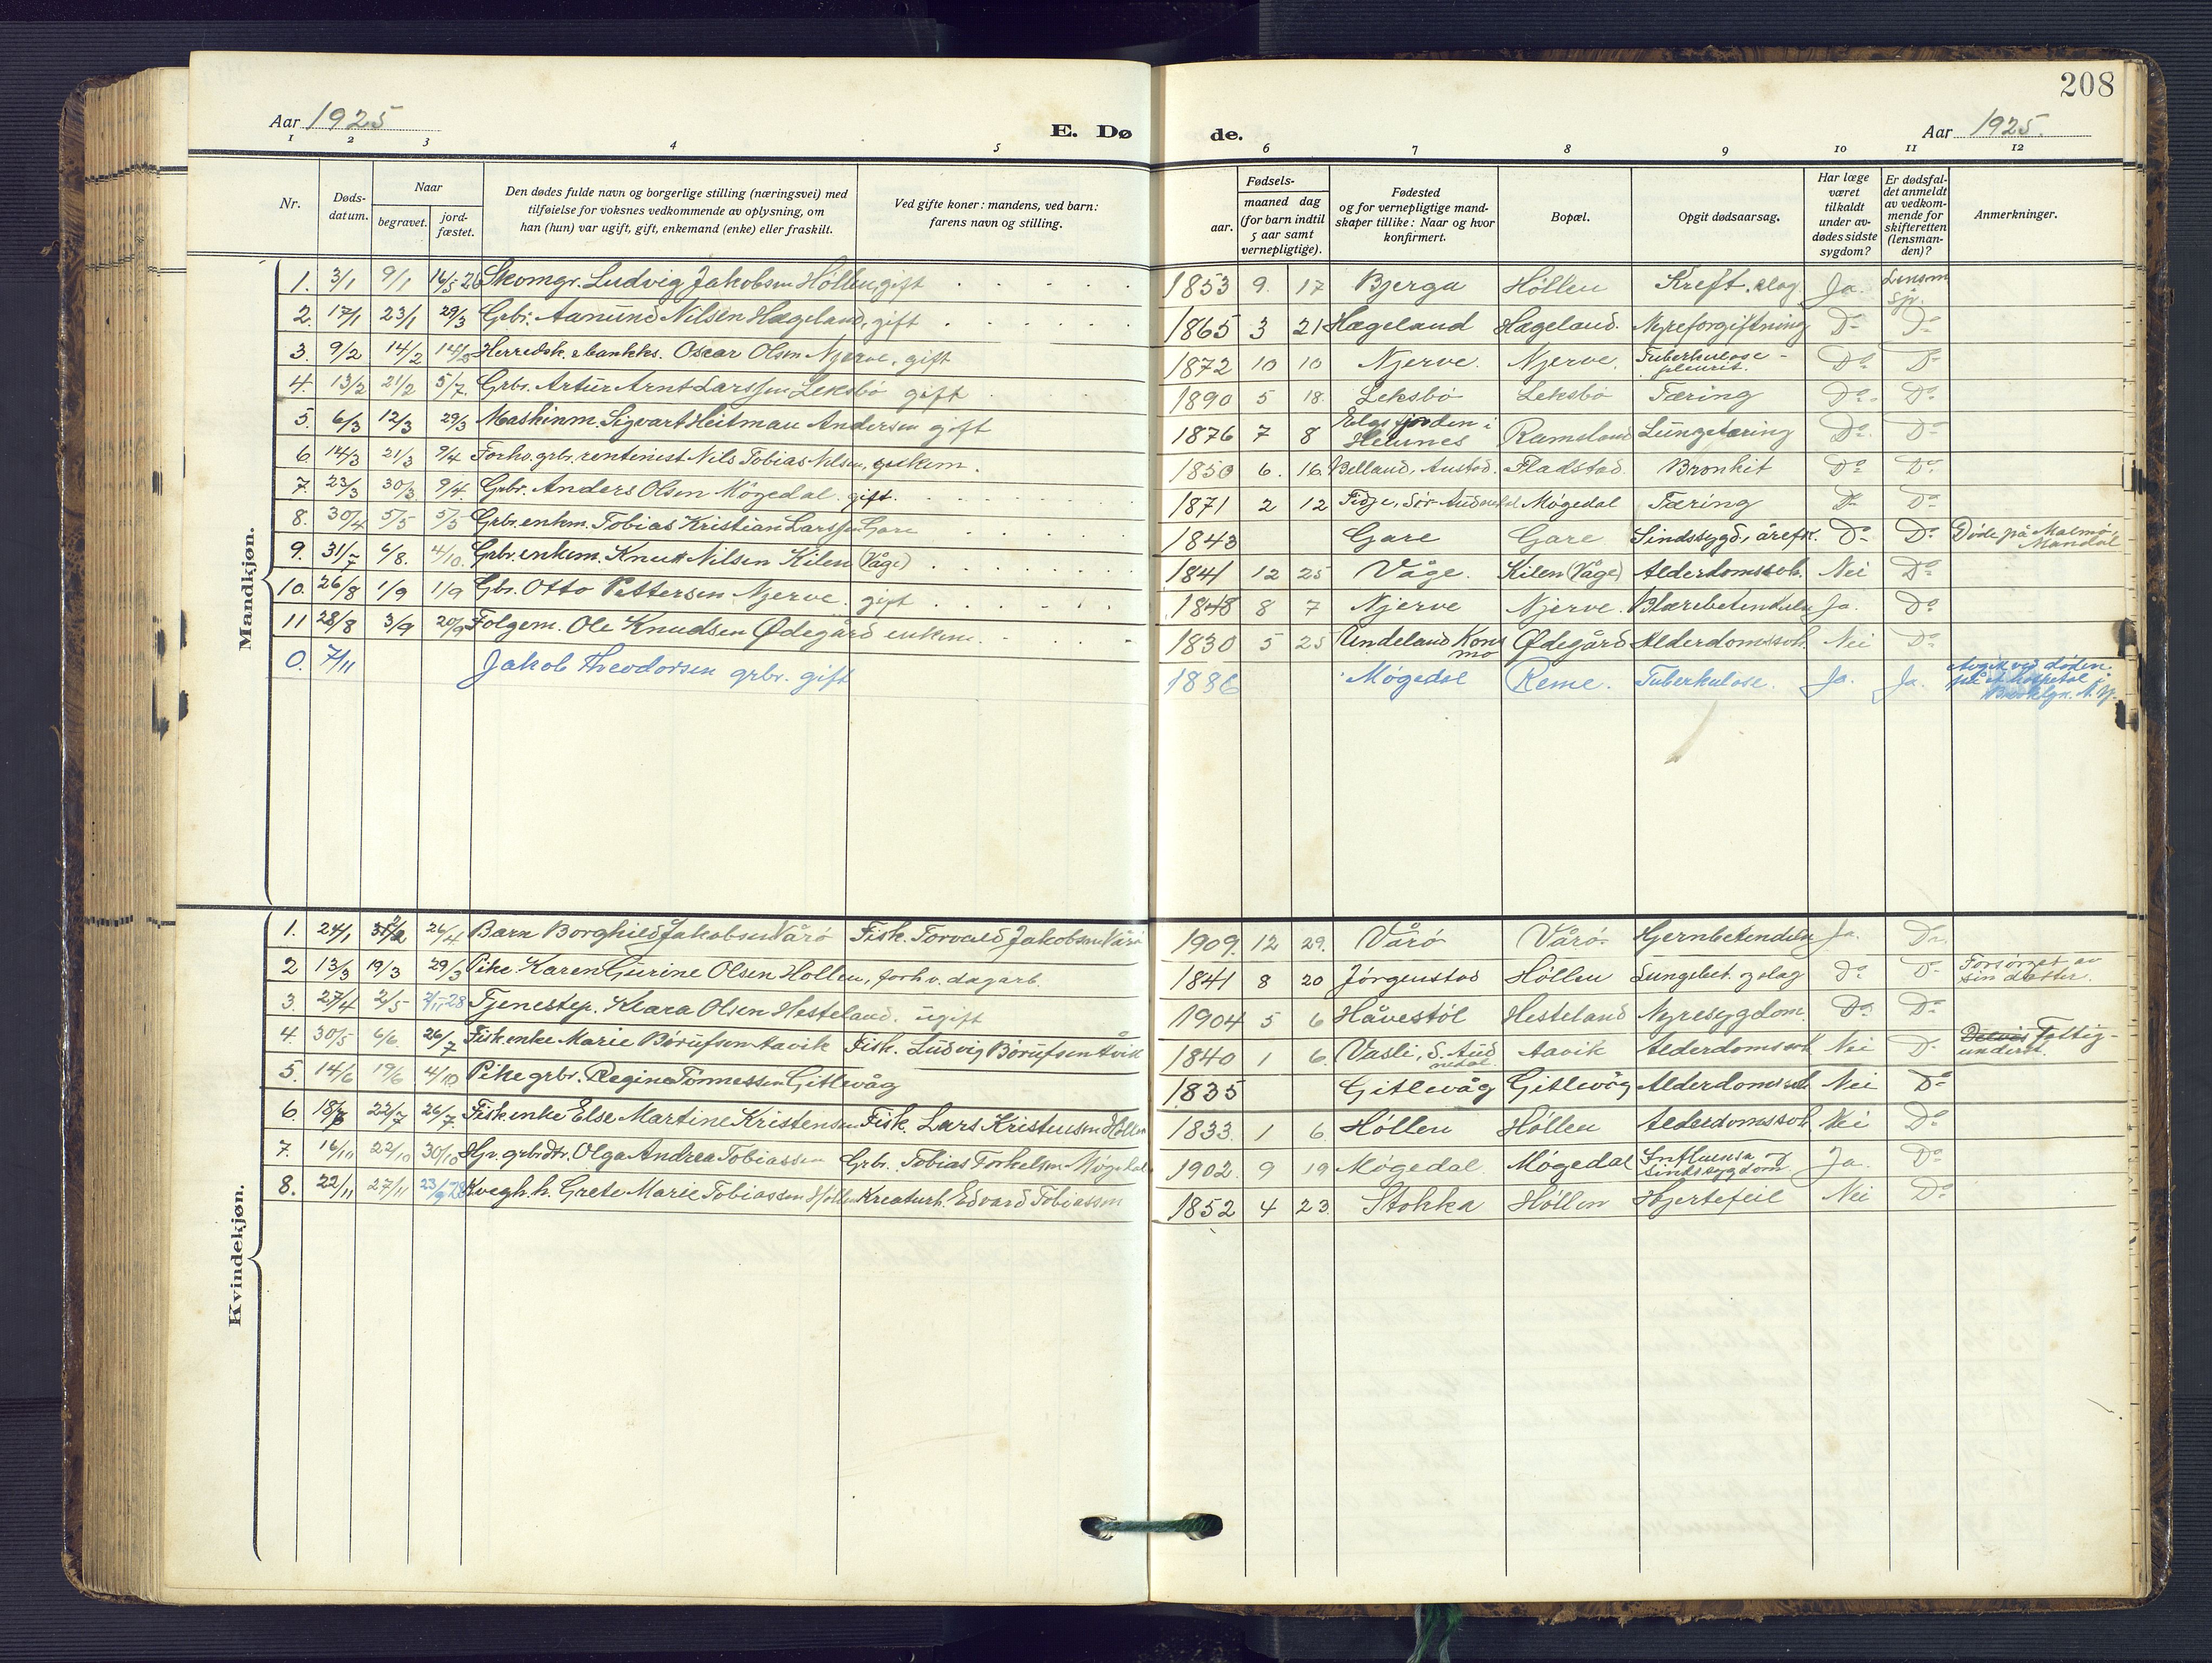 208
Aar 1925
E. Dø de.
Aar 1925.
1 2 3 4 5 6 7 8 9 10 11 12
Nr.
Døds-
datum.
Naar
begravet.
jord-
fæstet.
Den dødes fulde navn og borgerlige stilling (næringsvei) med
tilføielse for voksnes vedkommende av oplysning, om
han (hun) var ugift, gift, enkemand (enke) eller fraskilt.
Ved gifte koner: mandens, ved barn:
farens navn og stilling.
Fødsels-
aar.
maaned dag
(for barn indtil
5 aar samt
vernepligtige).
Fødested
og for vernepligtige mand-
skaper tillike: Naar og hvor
konfirmert.
Bopæl.
Opgit dødsaarsag.
Har læge
været
tilkaldt
under av-
dødes sidste
sygdom?
Er dødsfal-
det anmeldt
av vedkom-
mende for
skifteretten
(lensman-
den)?
Anmerkninger.
Mandkjøn.
1. 3/1 9/1 16/5 26 Skomgr. Ludvig Jakobsen Höllen, gift 1853 9. 17 Bjerga Höllen Kreft, slag Ja. Lensm
2. 17/1 23/1 29/3 Grbr. Aanund Nilsen Hægeland, gift 1865 3 21 Hægeland Hægeland. Nyreforgiftning Do Do
3. 9/2 14/2 14/2 Herredsk. & bankks. Oscar Olsen Njerve, gift 1872 10 10 Njerve. Njerve. Tuberkulose-pleurit. Do Do
4. 13/2 21/2 5/7. Grbr. Artur Arnt Larssen Leksbö gift 1890 5 18. Leksbö Leksbö Tæring Do Do
5. 6/3 12/3 29/3 Maskinm. Sigvart Heitman Andersen gift 1876 7 8 Helunes Ramsland Lungetæring Do Do
6. 14/3 21/3 9/4 Forhv. grbr. rentenist Nils Tobias Nilsen, enkem. 1850 6. 16. Belland, Austad. Fladstad Bronkit Do Do
7. 23/3 30/3 9/4. Grbr. Anders Olsen Mögedal gift. 1871 2 12 Fidje, Sör-Audnedal Mögedal Tæring Do Do
8. 30/4 5/5 5/5 Grbr. enkm. Tobias Kristian Larssen Gare 1843 Gare Gare Sindssygd., årefk. Do Do Døde på Malmö, Mandal
9. 31/7 6/8. 4/10. Grbr. enkem. Knut Nilsen Kilen (Våge) 1841 12 25 Våge. Kilen (Våge) Alderdomssvk. Nei Do
10. 26/8 1/9 1/9 Gbr. Otto Pettersen Njerve. gift 1848 8 7 Njerve Njerve. Blærebetendelse Ja. Do
11 28/8 3/9 20/9 Folgem. Ole Knudsen Ødegård enkem. 1830 5 25 Undeland Konsmo Ødegård Alderdomssvk. Nei Do
0. 7/11 Jakob Theodorsen grbr. gift 1886 Mögedal Reme. Tuberkulose. Ja. Ja. Avgik ved døden på et hospital i Brooklyn. N.Y.
Kvindekjøn.
1. 24/1 26/4 Barn Borghild Jakobsen Vårö Fisk. Torvald Jakobsen Vårö 1909. 12 29. Vårö Vårö Hjernbetendelse Ja. Do
2 13/3 19/3 29/3 Pike Karen Gurine Olsen Hollen, forhv. dagarb. 1841 8 20 Jörgenstad Höllen Lungebet. & slag Do Do Forsörget av sin datter.
3 27/4 2/5 2/11-28 Tjenestep. Klara Olsen Hesteland. ugift 1904 5 6 Håvestöl Hesteland Nyresygdom. Do Do
4. 30/5 6/6. 26/7 Fisk. enke Marie Börufsen Aavik Fisk. Ludvig Börufsen Åvik 1840 1 6. Vasli, S. Audnedal Aavik Alderdomssvk Nei Do Delvis Fattigunderst.
5. 14/6 19/6 4/10 Pike grbr. Regine Tönnessen Gitlevåg 1835 Gitlevåg Gitlevåg Alderdomssvk Nei Do
6 18/7 22/7 26/7. Fisk. enke Else Martine Kristensen Fisk. Lars Kristensen Höllen 1833. 1 6. Höllen Höllen Alderdomssvk Nei Do
7. 16/10 22/10 30/10 Hjv. grbrdtr. Olga Andrea Tobiassen Grbr. Tobias Torkelsen Mögedal 1902 9 19 Mögedal. Mögedal Influensa og sindssygdom Ja. Do
8. 22/11 27/11 23/9 28 Kvegh. h. Grete Marie Tobiassen Höllen Kreaturh. Edvard Tobiassen 1852 4 23. Stokka Höllen Hjertefeil Nei Do